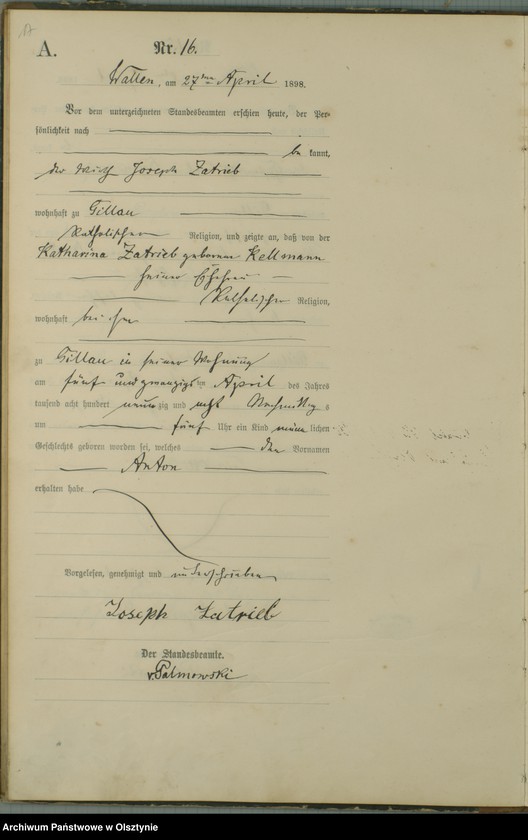 A.
Nr. 16.
Wallen, am 27ten April 1898.
Vor dem unterzeichneten Standesbeamten erschien heute, der Per-
sönlichkeit nach
be kannt,
der Wirth Joseph Zatrieb
wohnhaft zu Gillau
katholischen Religion, und zeigte an, daß von der
Katharina Zatrieb geborenen Kellmann
seiner Ehefrau
katholischer Religion,
wohnhaft bei ihm
zu Gillau in seiner Wohnung
am fünf und zwanzigsten April des Jahres
tausend acht hundert neunzig und acht Nachmittags
um fünf Uhr ein Kind männlichen
Geschlechts geboren worden sei, welches den Vornamen
Anton
erhalten habe
Vorgelesen, genehmigt und unterschrieben
Joseph Zatrieb
Der Standesbeamte.
v. Palmowski
Archiwum Państwowe w Olsztynie